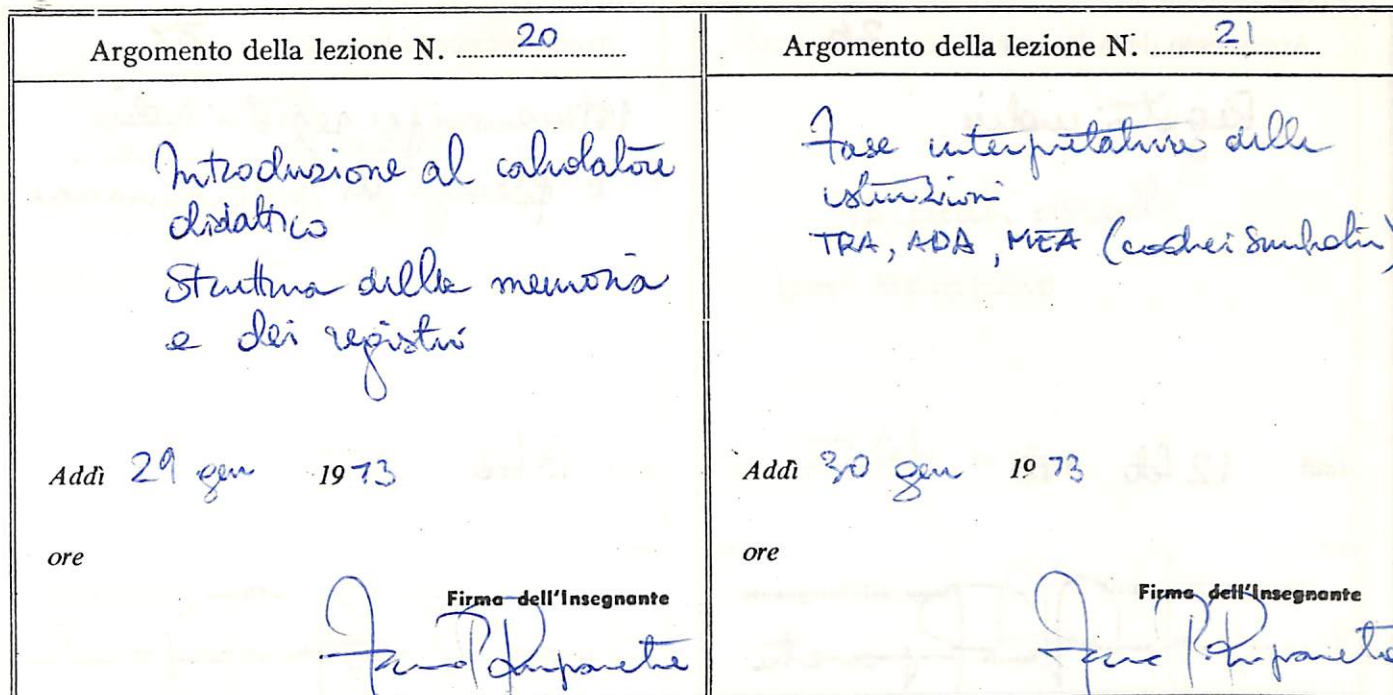 Argomento della lezione N. 20
Introduzione al calcolatore
didattico
Struttura della memoria
e dei registri
Addì 29 gen 1973
ore
Firma dell'Insegnante
Argomento della lezione N. 21
Fase interpretativa delle
istruzioni
TRA, ADA, MEA (codici simbolici)
Addì 30 gen 19 73
ore
Firma dell'Insegnante